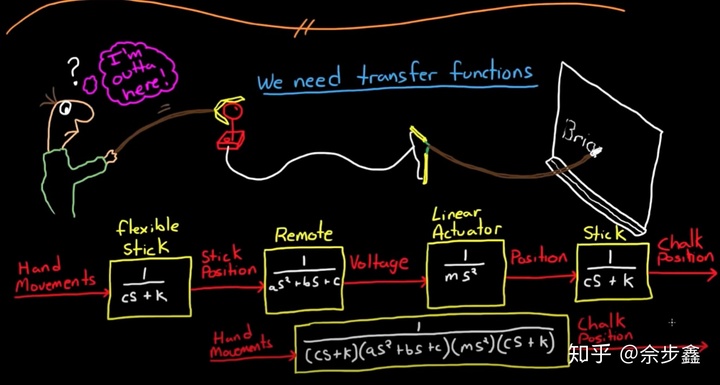 ?
I'm
outta
here!
We need transfer functions
Bria
flexible
Stick
Remote
Linear
Actuator
Stick
Hand
Movements
1
cs + k
Stick
Position
1
as² + bs + c
Voltage
1
ms²
Position
1
cs + k
Chalk
Position
Hand
Movements
1
(cs+k)(as²+bs+c)(ms²)(cs+k)
Chalk
Position
知乎 @佘步鑫